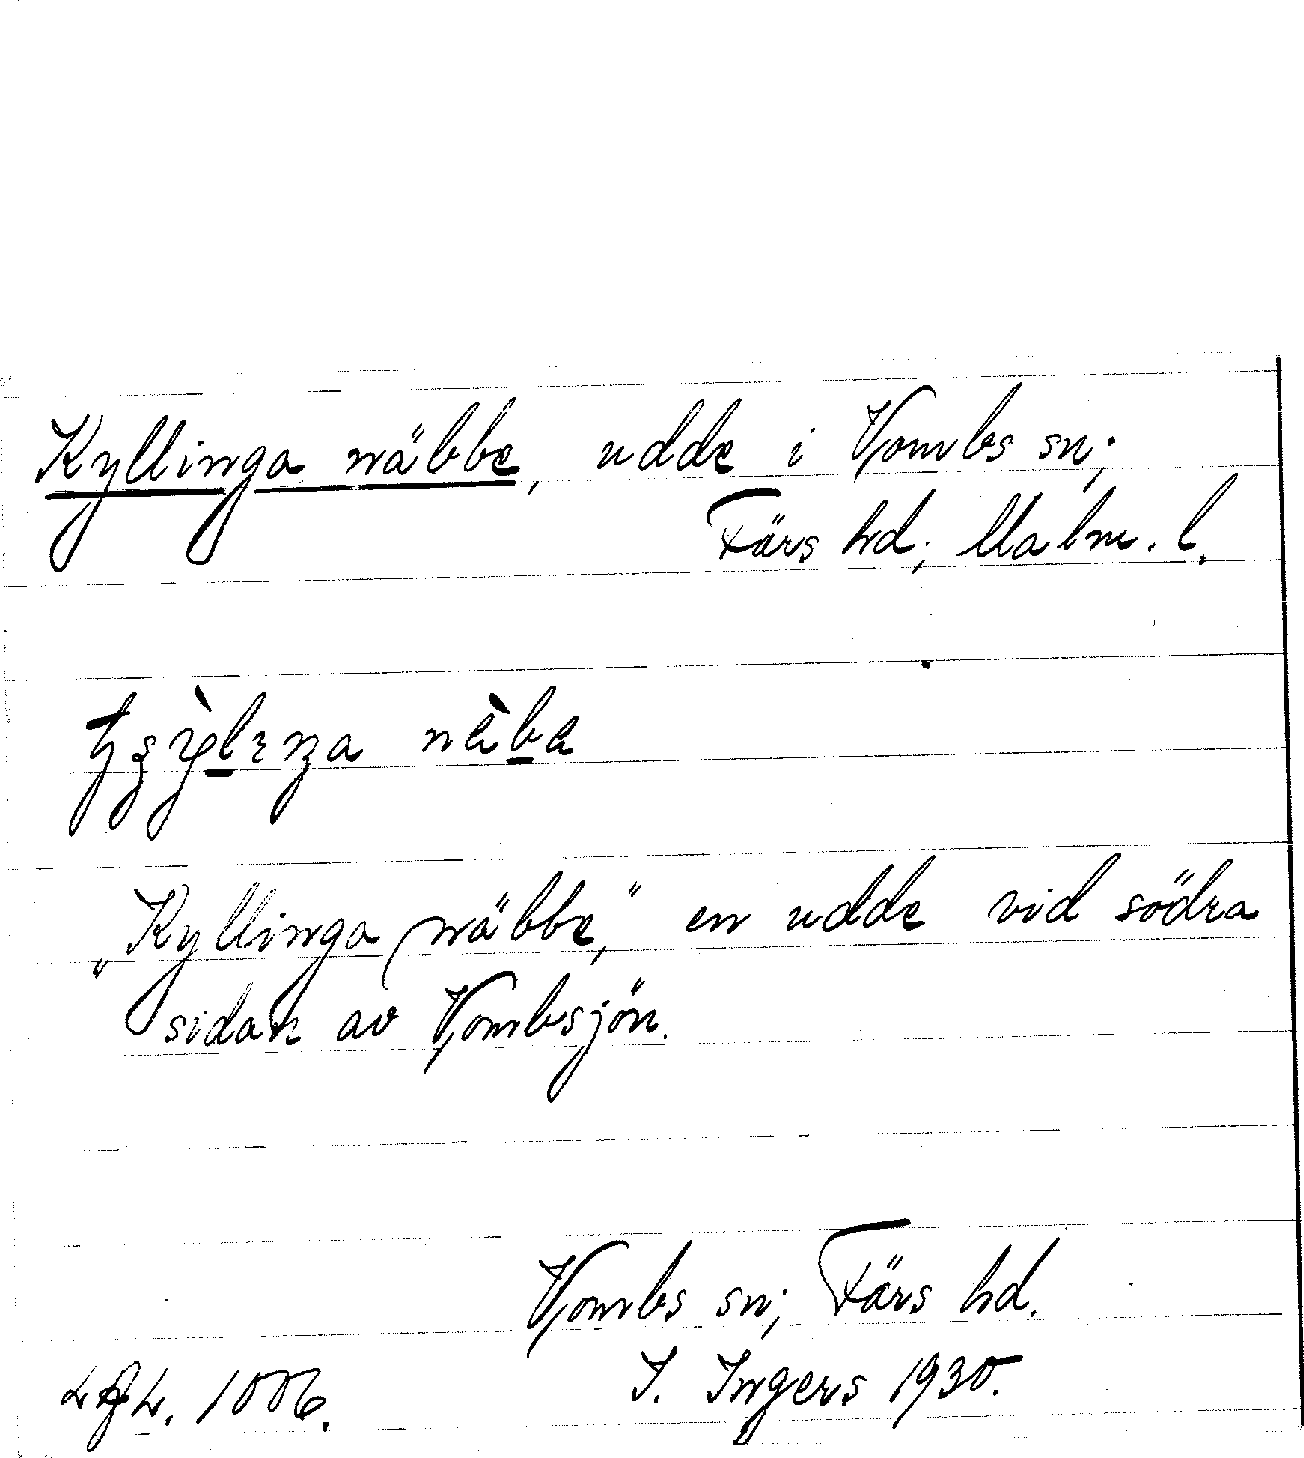 Kyllinga näbbe, udde i Vombs sn;
Färs hd; Malm. l.
näba
„Kyllinga näbbe,” en udde vid södra
sidan av Vombsjön.
Vombs sn; Färs hd.
I. Ingers 1930.
1006.